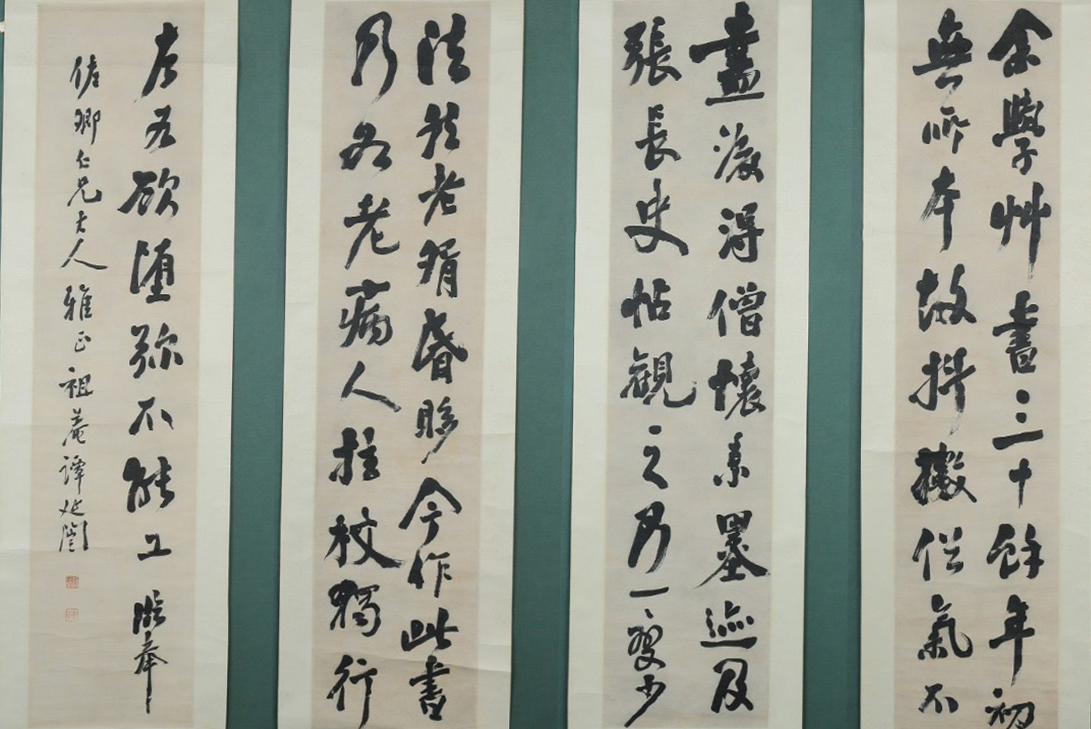 余學艸書三十餘年初
無所本故抖擻俗氣不
盡後得僧懷素墨迹及
張長史帖觀之乃一變少
法然老昏眵今作此書
乃老病人拄杖獨行
左右欲墮弥不能工臨奉
佐卿仁兄大人雅正祖菴譚延闓